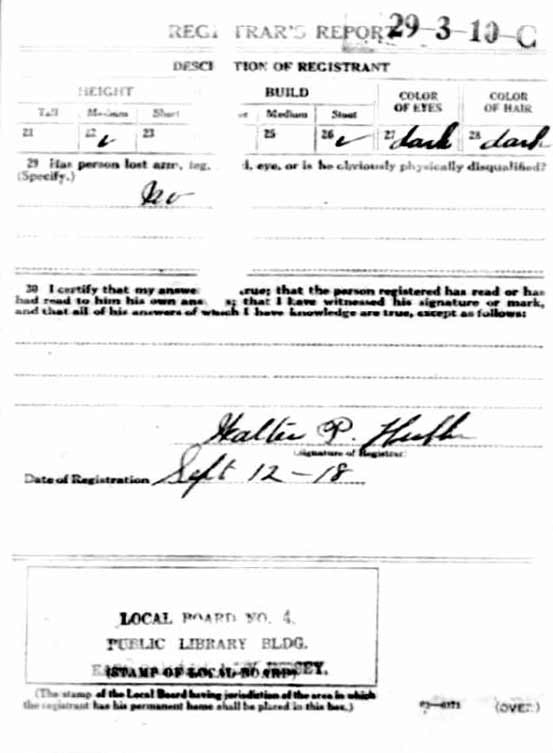 REGI TRAR'S REPORT 29-3-10-C
DESCRI TION OF REGISTRANT
HEIGHT BUILD COLOR OF EYES COLOR OF HAIR
Tall Medium Short Medium Stout
21 22 ✓ 23 25 26 ✓ 27 dark 28 dark
29 Has person lost arm, leg, d, eye, or is he obviously physically disqualified?
(Specify.)
No
30 I certify that my answe true; that the person registered has read or has
had read to him his own ans s; that I have witnessed his signature or mark,
and that all of his answers of which I have knowledge are true, except as follows:
Walter P.
(Signature of Registrar)
Date of Registration Sept 12-18
LOCAL BOARD NO. 4.
PUBLIC LIBRARY BLDG.
JERSEY.
(STAMP OF LOCAL BOARD)
(The stamp of the Local Board having jurisdiction of the area in which
the registrant has his permanent home shall be placed in this box.)
(OVER)